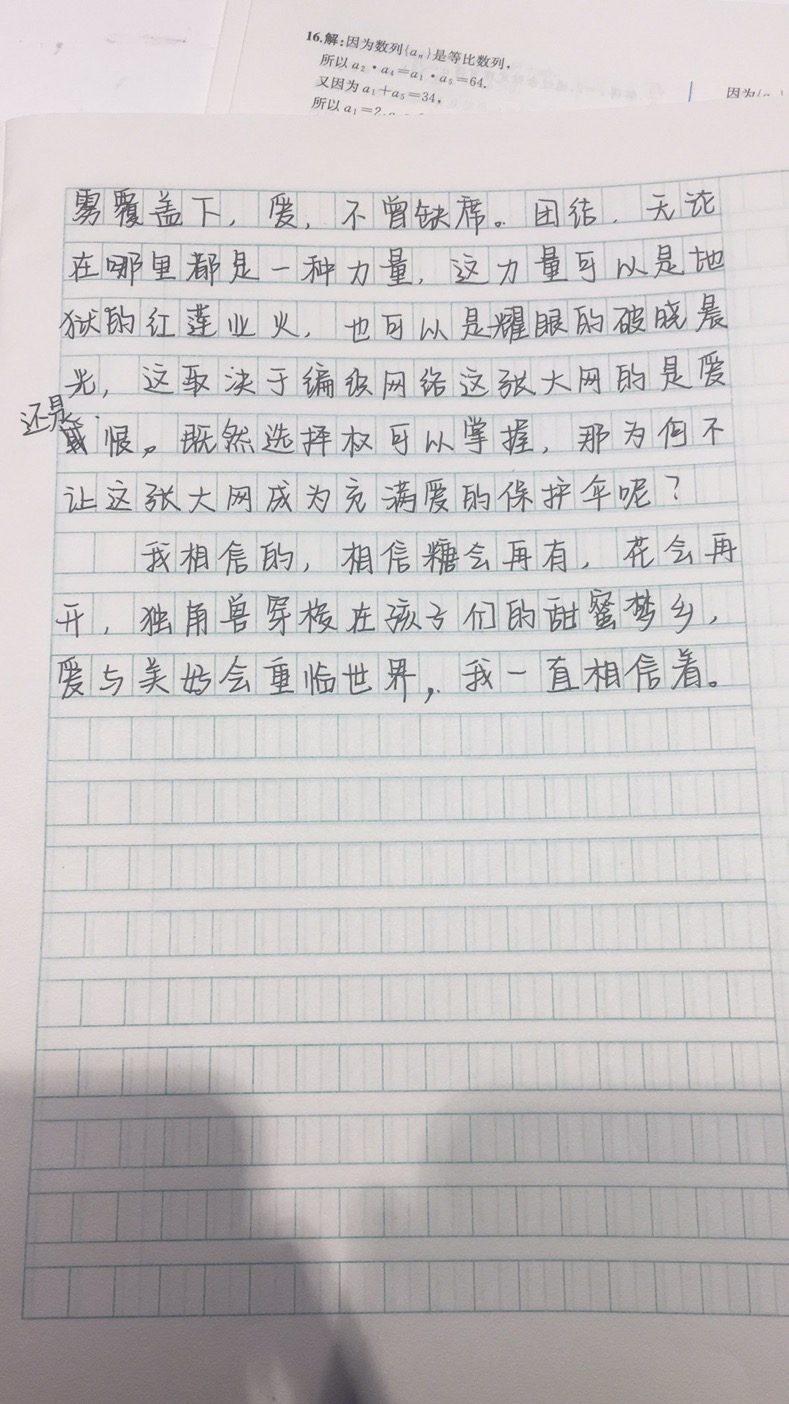 16.解:因为数列{aₙ}是等比数列,
所以 a₂·a₄=a₁·a₅=64.
又因为 a₁+a₅=34,
所以 a₁=2,
因为
雾覆盖下，爱，不曾缺席。团结，无论
在哪里都是一种力量，这力量可以是地
狱的红莲业火，也可以是耀眼的破晓晨
光，这取决于编织网络这张大网的是爱
还是恨。既然选择权可以掌握，那为何不
让这张大网成为充满爱的保护伞呢？
我相信的，相信糖会再有，花会再
开，独角兽穿梭在孩子们的甜蜜梦乡，
爱与美好会重临世界，我一直相信着。